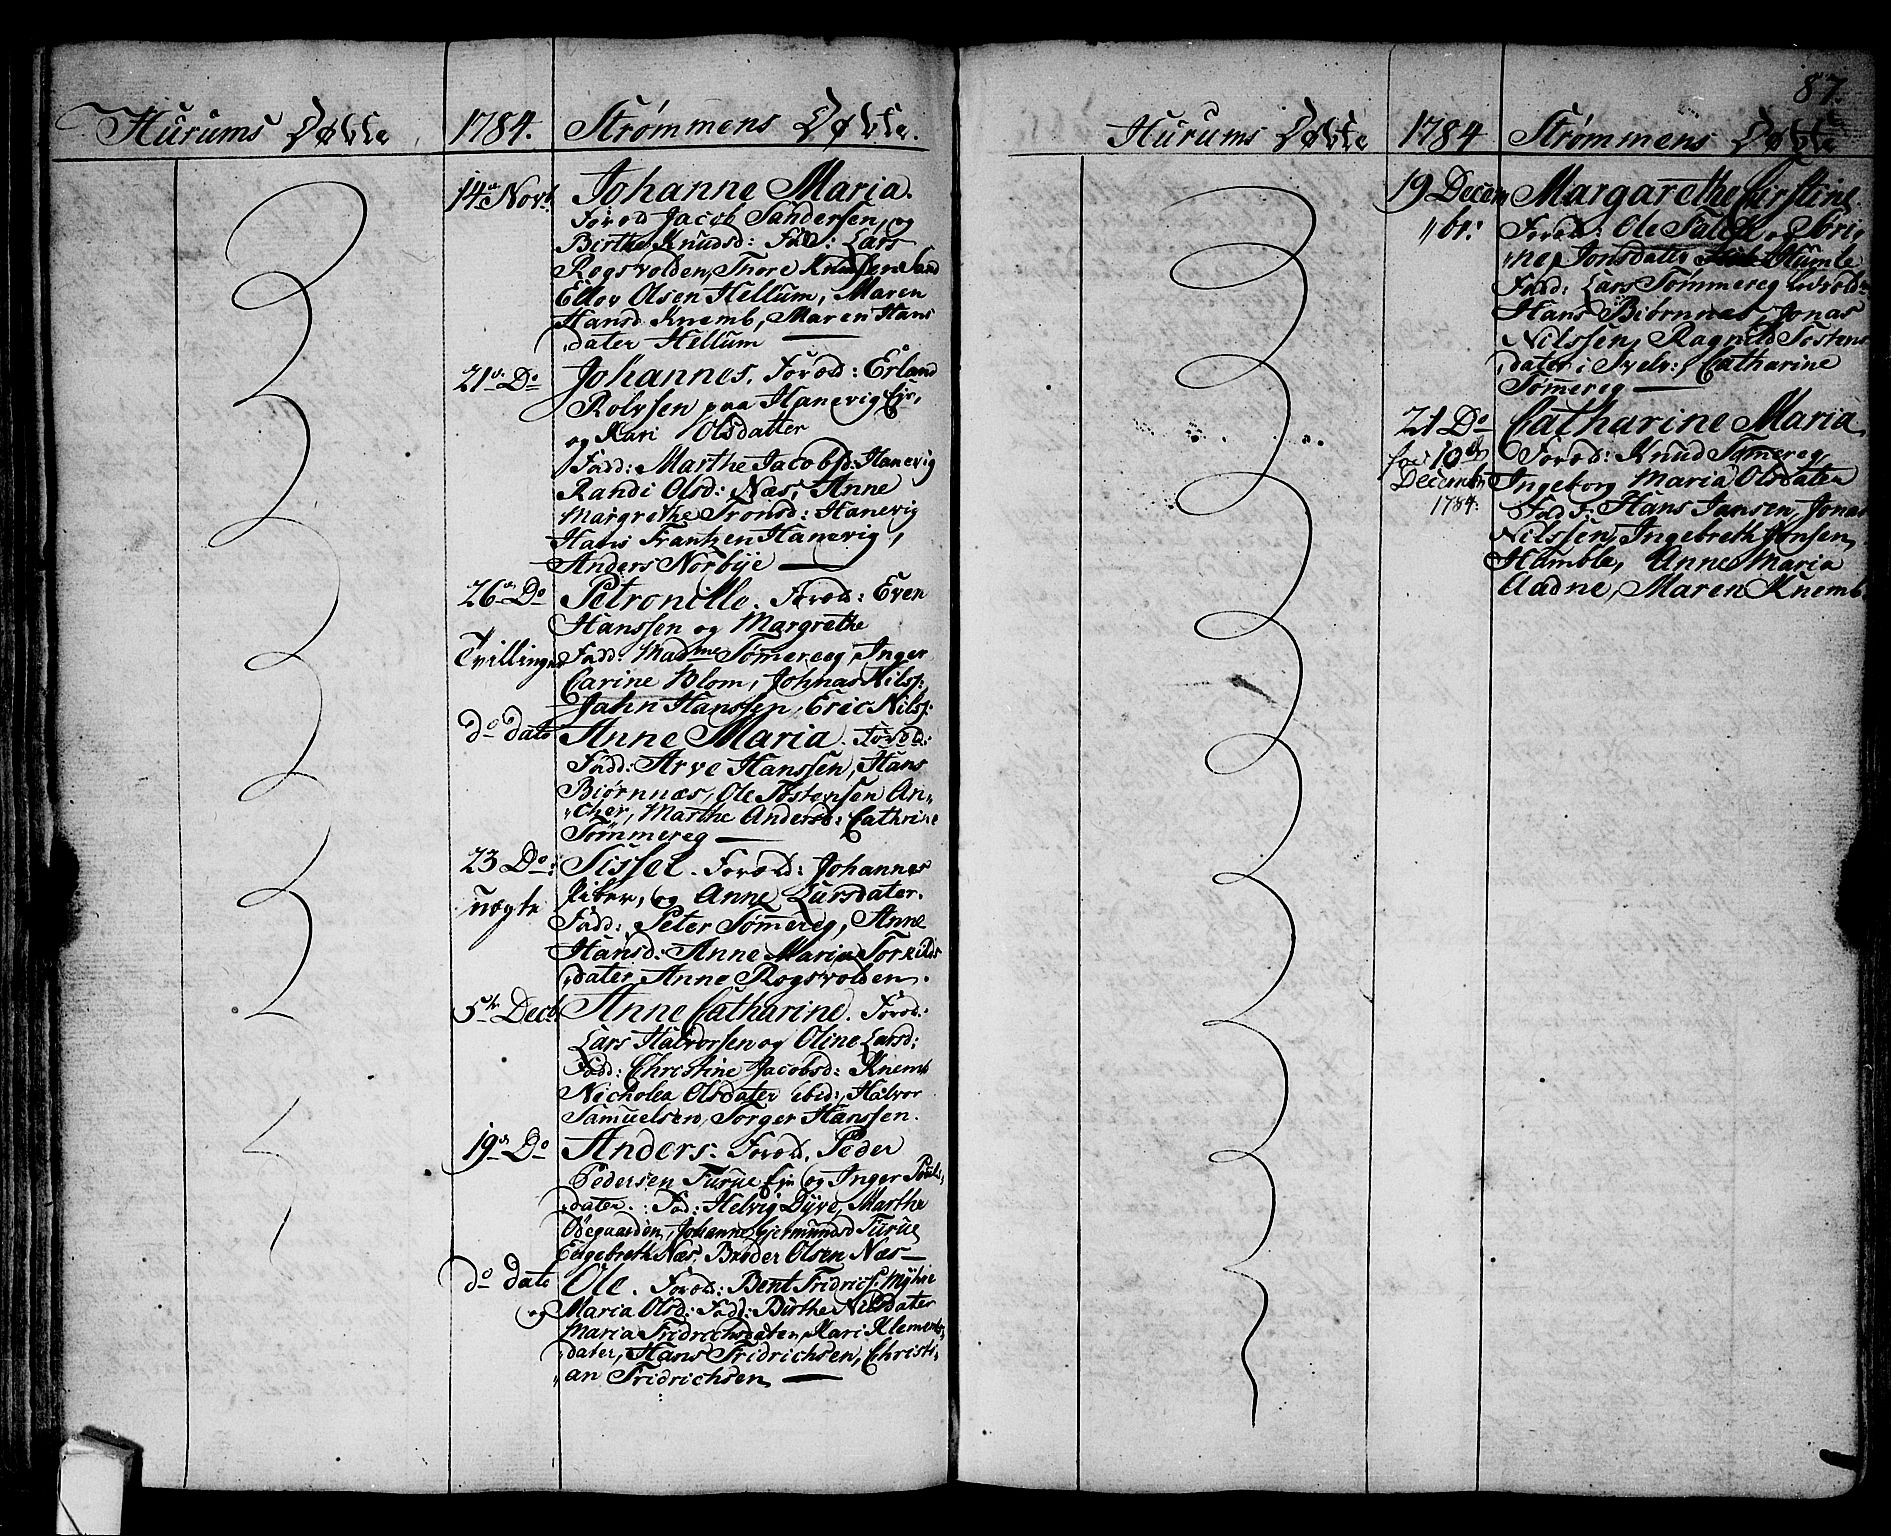 Hurums Døbte
1784.
Strømmens Døbte.
14de Novb.
Johanne Maria.
Foræld Jacob Sandersen, og
Birthe Knudsd: Fad: Lars
Rogsvolden, Thore Knudsen Sand
Ellov Olsen Hellum, Maren
Hansd Knemb, Maren Hans
dater Hellum
21de Do
Johannes. Foræld: Erland
Rolvsen paa Hanevig Eje,
og Kari Olsdatter
Fadd: Marthe Jacobsd: Hanevig
Randi Olsd: Næs, Anne
Margrethe Tronsd: Hanevig
Hans Frantzen Hanevig,
Anders Norbye
26de Do
Petronille. Foræld: Even
Hanssen og Margrethe
Tvillinger
Fadd: Madme Tømereeg, Inger
Carine Blom, Johnas Nilss:
Jahn Hanssen, Eric Nilss:
do dato
Anne Maria. Foræld:
Fadd: Arve Hanssen, Hans
Biørnnæs, Ole Tostensen An=
"cher, Marthe Andersd: Cathrine
Tømmereg
23 Do:
uægte
Sissel. Foræld: Johannes
og Anne Larsdater.
Fadd: Peter Tømereg, Anne
Hansd: Anne Maria Torkilds
dater, Anne Rogsvolden.
5te Decb.
Anne Catharine. Foræld:
Lars Halvorsen og Oline Larsd:
Fadd: Christine Jacobsd: Knemb
Nicholea Olsdater ibid:, Halvor
Samuelsen, Torger Hanssen.
19de Do
Anders. Foræld. Peder
Pedersen Furue Eje og Inger Pouls
dater. Fad: Helvig Dyve, Marthe
Ødegaarden, Johanne Giermundsd Furue
Engebreth Næs, Broder Olsen Næs
do dato
Ole. Foræld: Bent Fridrichs: Myhre
og Maria Olsd: Fadd: Birthe Nilsdater
Maria Fridrichsdater, Kari Klemets
dater, Hans Fridrichsen, Christi=
"an Fridrichsen
87.
Hurums Døbte
1784
Strømmens Døbte
19 Decem
"br:
Margarethe Cirstine
Foræld: Ole Falck og Søri
"ne Jonsdatter Humle
Fadd: Lars Tømmereg
Hans Biørnnæs, Jonas
Nilssen, Ragnild Tostens
dater i Svelv:, Catharine
Tømereg
21 Do
10de
Decembr
1784.
Catharine Maria
Foræld: Knud Tømereg,
Ingeborg Maria Olsdater
Fadd: Hans Jansen, Jonas
Nilssen, Ingebreth Jonsen
Humble, Anne Maria
Aadne, Maren Knemb.